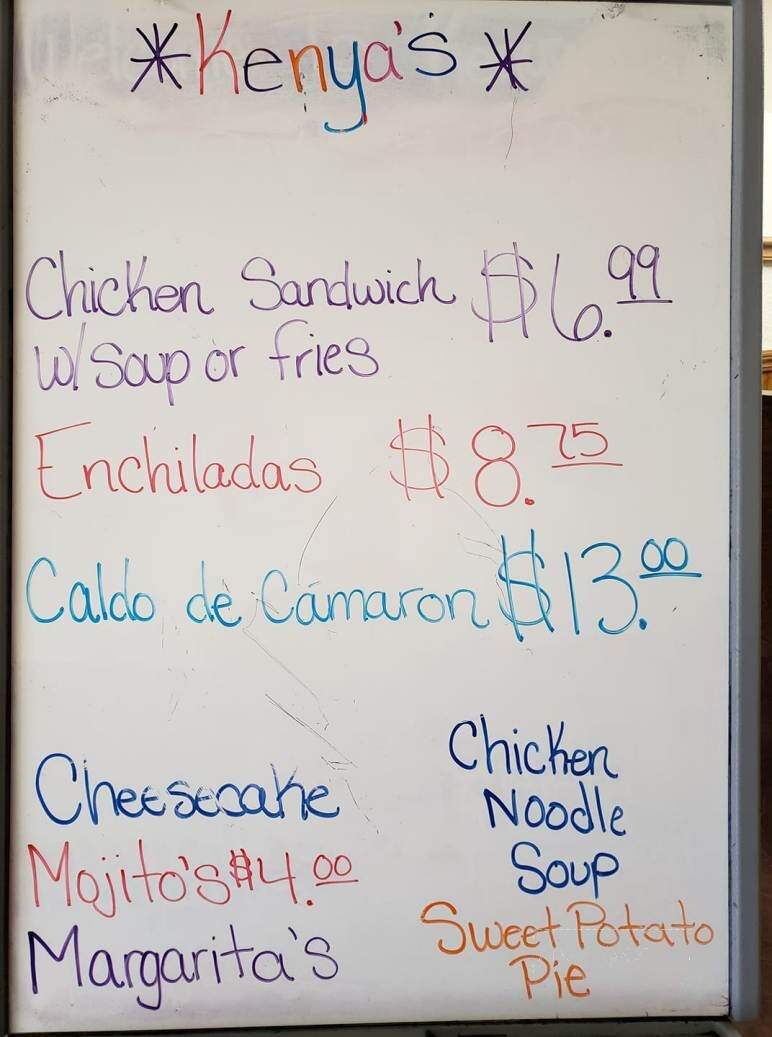 *Kenya's*
Chicken Sandwich $6.99
w/ Soup or fries
Enchiladas $8.75
Caldo de Cámaron $13.00
Cheesecake
Mojito's $4.00
Margarita's
Chicken
Noodle
Soup
Sweet Potato
Pie